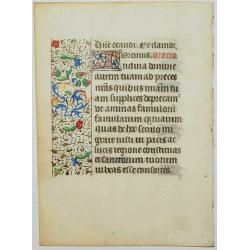 Dñe exaudi. Et clamor.
Oremus. Oratio
Inclina domine
aurem tuam ad preces
nr̃as quibus miam̃ tu
am supplices deprecam̃
ut animas famulor̃
famularum q̃ tuarum
quas de hoc seculo mi
grare iussisti in pacis ac
lucis regione constituas
et sanctorum tuorum
iubeas esse consortes.